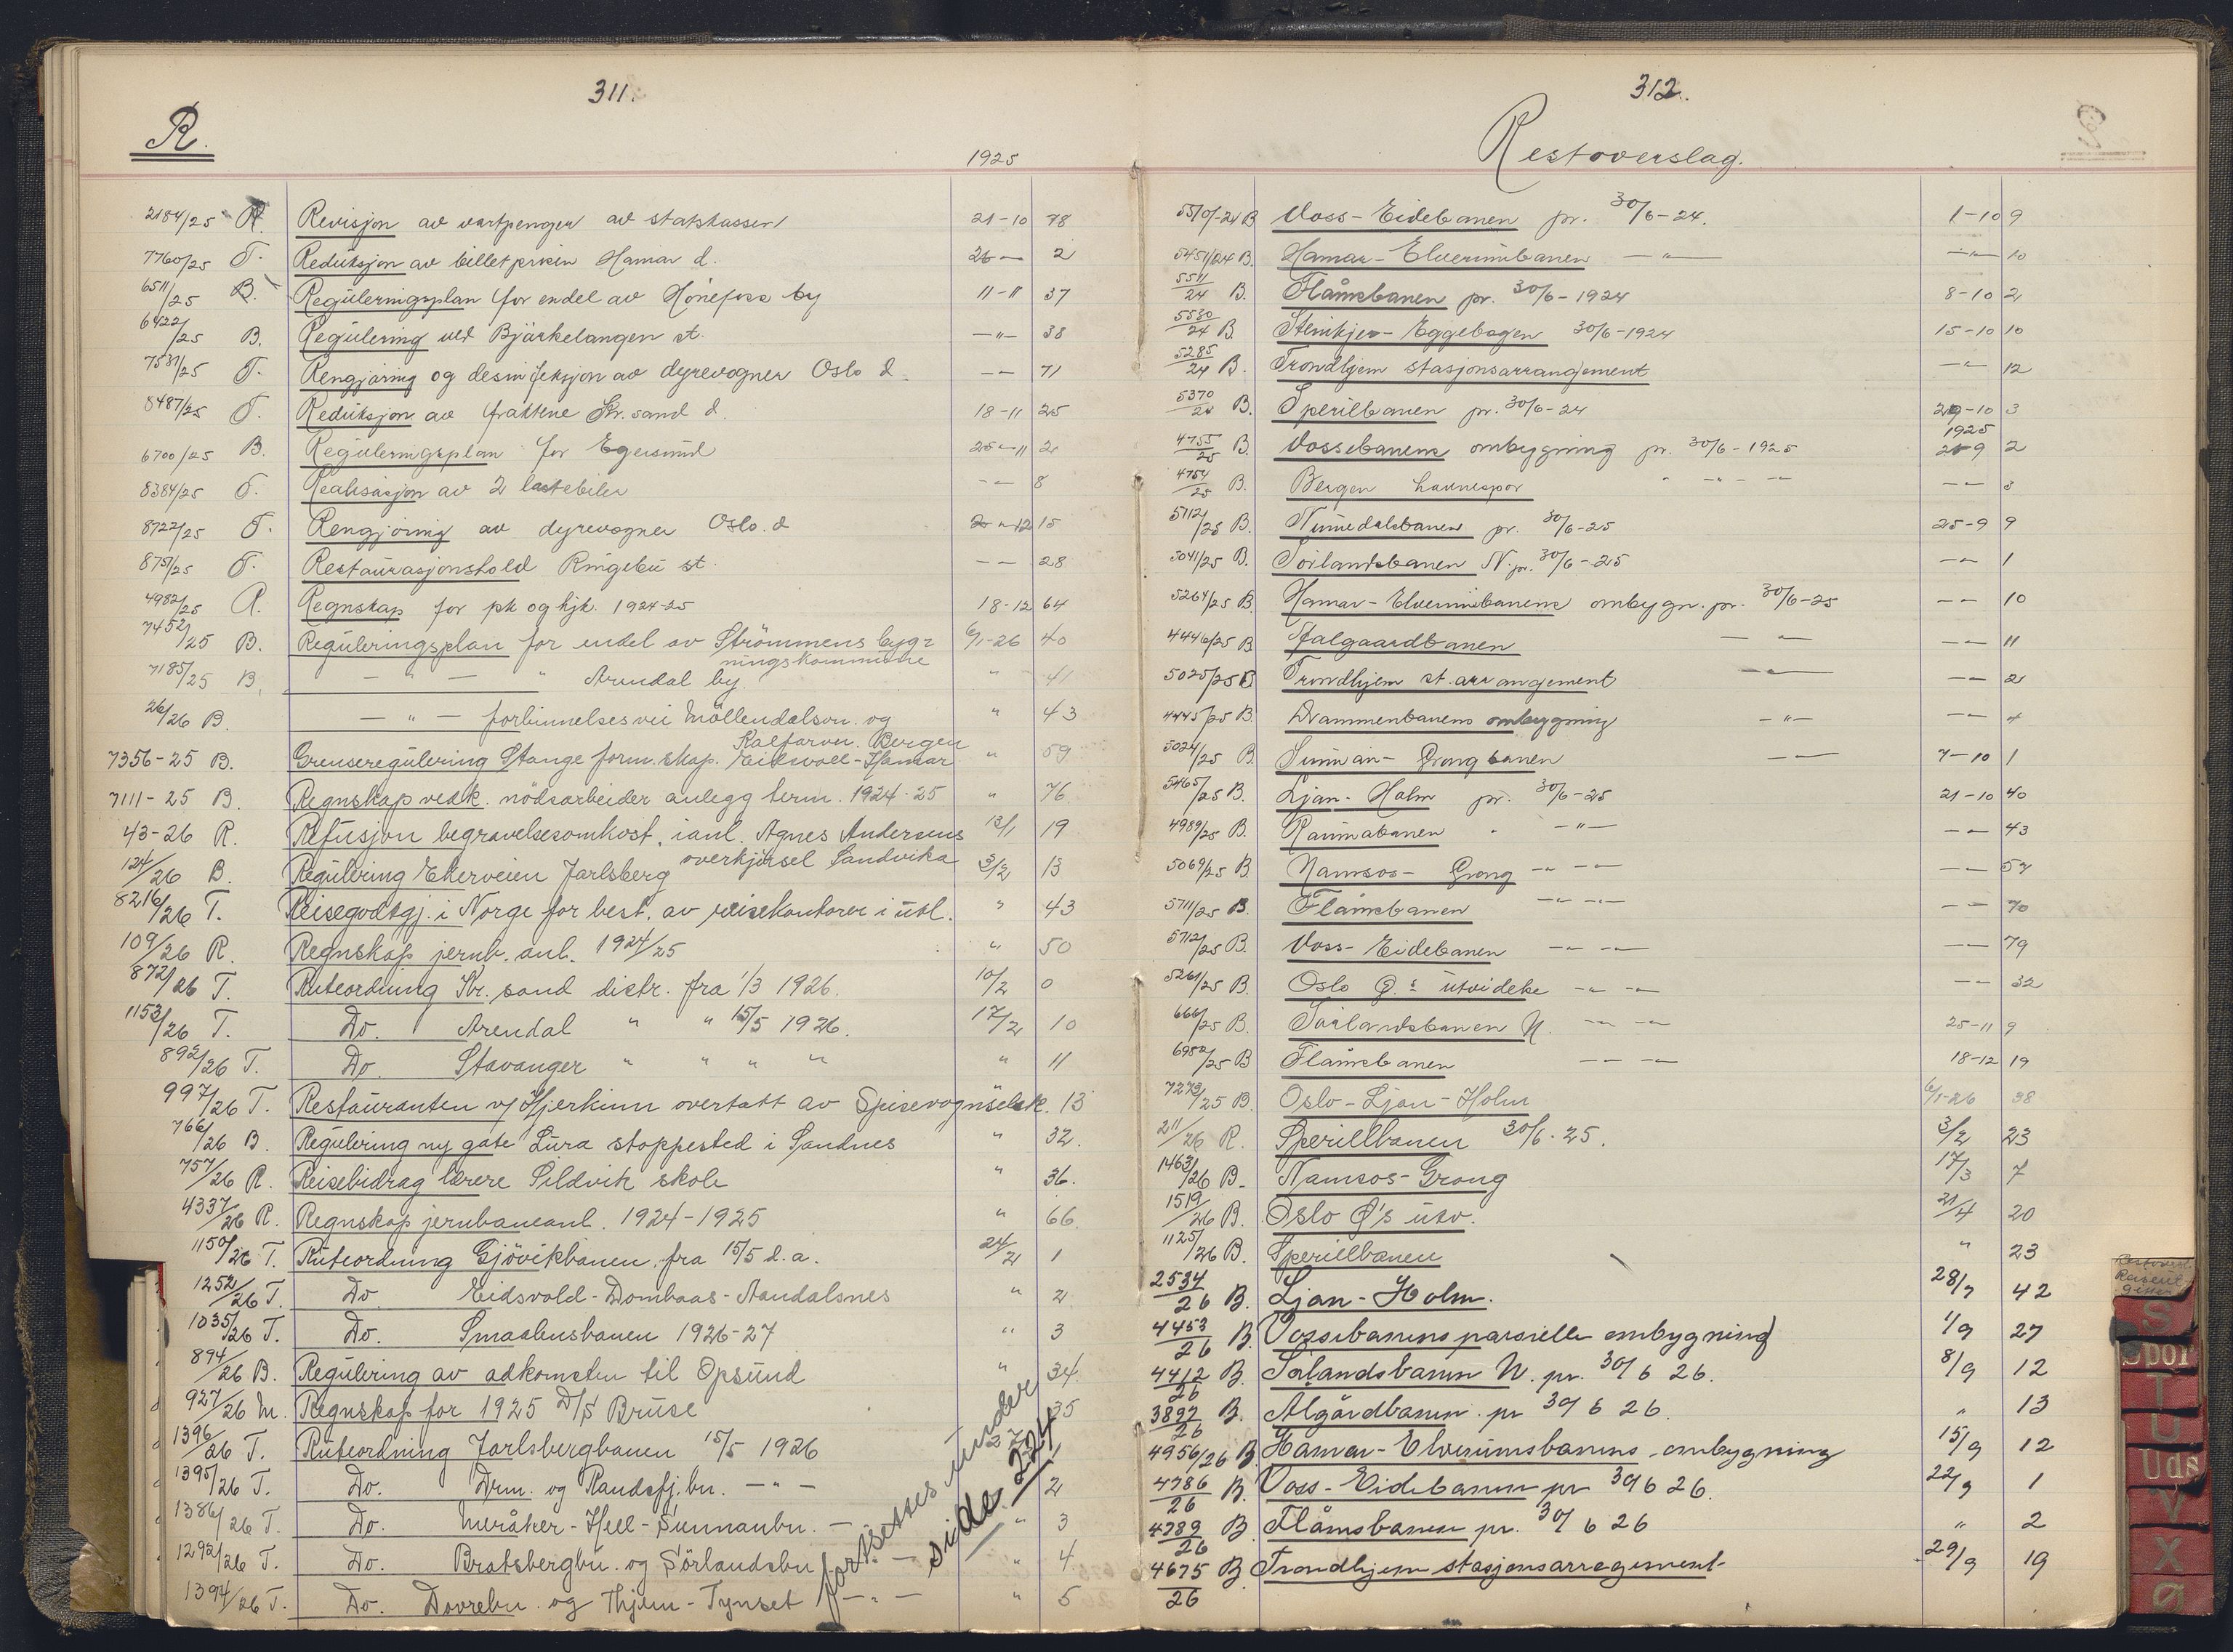 311.
R.
1925
2184/25 R. Revisjon av vartpenger av statskassen 21-10 78
7760/25 T. Reduksjon av billetprisen Hamar d. 26 — 2
6511/25 B. Reguleringsplan for endel av Hönefoss by 11-11 37
6422/25 B. Regulering ved Bjärkelangen st. —"— 38
7531/25 T. Rengjöring og desinfeksjon av dyrevogner Oslo d. —— 71
8487/25 T. Reduksjon av fraktene Kr.sand d. 18-11 25
6700/25 B. Reguleringsplan for Egersund 25-11 2
8384/25 T. Realisasjon av 2 lastebiler —— 8
8722/25 T. Rengjöring av dyrevogner Oslo. d 2-12 15
8751/25 T. Restaurasjonshold Ringebu st. —— 28
4982/25 R. Regnskap for pk og hjk. 1924-25 18-12 64
7452/25 B. Reguleringsplan for endel av Strömmens byg-
ningskommune 6/1-26 40
7185/25 B. —"— " Arendal by " 41
26/26 B. —"— forbinnelsesvei Möllendalsvn. og
Kalfarvn. Bergen " 43
7356-25 B. Grenseregulering Stange form.skap. Eidsvoll-Hamar " 59
7111-25 B. Regnskap vedk. nödsarbeider anlegg term. 1924-25 " 76
43-26 R. Refusjon begravelsesomkost. ianl. Agnes Andersens 13/1 19
overkjörsel Sandvika
124/26 B. Regulering Ekerveien Jarlsberg 3/2 13
8216/26 T. Reisegodtgj. i Norge for best. av reisekontorer i utl. " 43
109/26 R. Regnskap jernb. anl. 1924/25 " 50
872/26 T. Ruteordning Kr. sand distr. fra 1/3 1926. 10/2 0
1153/26 T. Do. Arendal " " 15/5 1926. 17/2 10
892/26 T. Do. Stavanger " " " " " 11
997/26 T. Restauranten v/ Hjerkinn overtatt av Spisevognselsk. 13
766/26 B. Regulering ny gate Lura stoppested i Sandnes " 32.
757/26 R. Reisebidrag lærere Sildvik skole " 36.
4337/26 R. Regnskap jernbaneanl. 1924-1925 " 66.
1150/26 T. Ruteordning Gjövikbanen, fra 15/5 d.a. 24/2 1
1252/26 T. Do. Eidsvold-Dombaas-Aandalsnes " 2
1035/26 T. Do. Smaalensbanen 1926-27 " 3
894/26 B. Regulering av adkomsten til Opsund " 34.
927/26 M. Regnskap for 1925 D/S Bruse 35
1396/26 T. Ruteordning Jarlsbergbanen 15/5 1926
1395/26 T. Do. Drm. og Randsfj.bn. —"— 2
1386/26 T. Do. Meråker-Hell-Sunnanbn. — " 3
1292/26 T. Do. Bratsbergbn. og Sörlandsbn. —"— " 4.
1394/26 T. Do. Dovrebn. og Thjem-Tynset —"— " 5
fortsettes under
side 224
312.
Restoverslag.
5510/-24 B Voss-Eidebanen pr. 30/6-24. 1-10 9
5451/24 B. Hamar-Elverumbanen —"— —"— 10
5511/24 B. Flåmsbanen pr. 30/6-1924 8-10 2
5530/24 B. Stenkjer-Eggebogen 30/6-1924 15-10 10
5285/24 B. Trondhjem stasjonsarrangement —"— 12
5370/24 B. Sperilbanen pr. 30/6-24 29-10 3
1925
4755/25 B. Vossebanens ombygning pr. 30/6-1925 2-9 2
4754/25 B. Bergen havnespor " —"— —"— —— 3
5112/25 B. Numedalsbanen pr. 30/6-25 25-9 9
5041/25 B. Sörlandsbanen N. pr. 30/6-25 —— 1
5264/25 B. Hamar-Elverumbanens ombygn. pr. 30/6-25 —— 10
4446/25 B Aalgaardbanen —— —— 11
5025/25 B Trondhjem st. arrangement —— —— 2
4445/25 B. Drammenbanens ombygning —"— —— 4
5024/25 B Sunnan-Grongbanen —— 7-10 1
5465/25 B. Ljan-Holm pr. 30/6-25 21-10 40
4989/25 B. Raumabanen " —"— —— 43
5069/25 B. Namsos-Grong —"— —"— ——
5711/25 B. Flåmsbanen —"— —"— —— 70
5712/25 B. Voss-Eidebanen —"— —"— —— 79
5261/25 B. Oslo Ø.s utvidelse —"— —"— —— 32
666/25 B. Sörlandsbanen N. —"— —"— 25-11 9
6952/25 B Flåmsbanen —"— —"— 18-12 19
7273/25 B. Oslo-Ljan-Holm 6/1-26 38
211/26 R. Sperillbanen 30/6-25. 3/2 23
1463/26 B. Namsos-Grong 17/3 7
1519/26 B. Oslo Ø's utv. 21/4 20
1125/26 B. Sperillbanen " 23
2534/26 B. Ljan-Holm. 28/7 42
4453/26 B. Vossebanens parsielle ombygning 1/9 27
4412/26 B. Sörlandsbanen N. pr. 30/6 26. 8/9 12
3897/26 B. Algårdbanen. pr 30/6 26. " 13
4956/26 B. Hamar-Elverumsbanens ombygning 15/9 12
4786/26 B. Voss-Eidebanen pr 30/6 26. 22/9 1
4789/26 B Flåmsbanen pr. 30/6 26 " 2
4675/26 B. Trondhjem stasjonsarragement 29/9 19
S
Spor
T
U
Uds
V
X
Ø